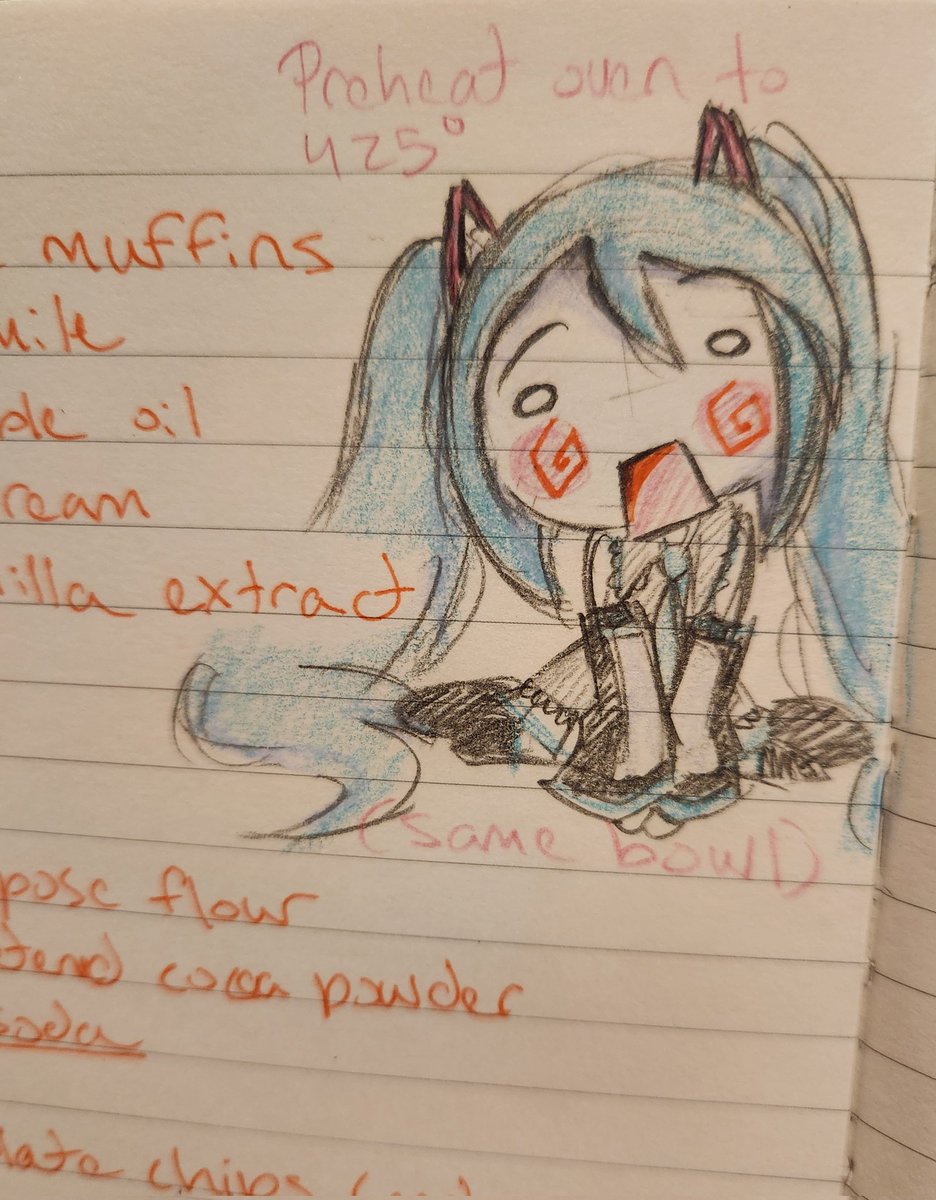 Preheat oven to
425°
muffins
milk
de oil
ream
illa extract
(same bowl)
pose flour
cocoa powder
soda
late chips